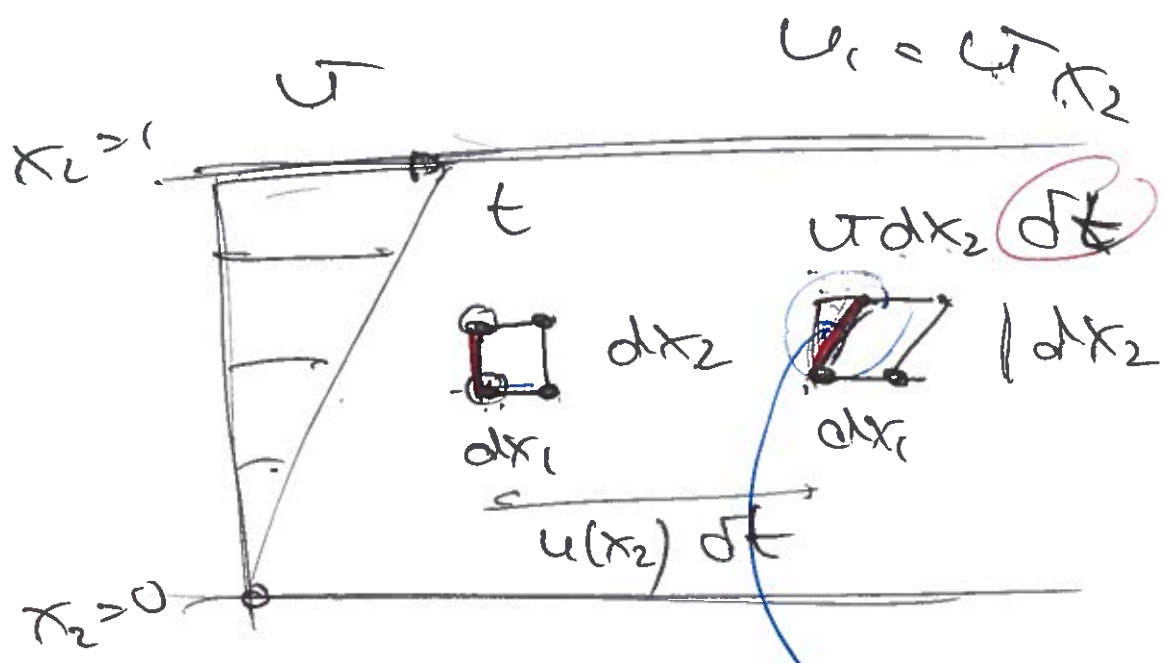 U
u₁ = U x₂
x₂=1
t
U dx₂ δt
dx₂
dx₂
dx₁
dx₁
u(x₂) δt
x₂=0